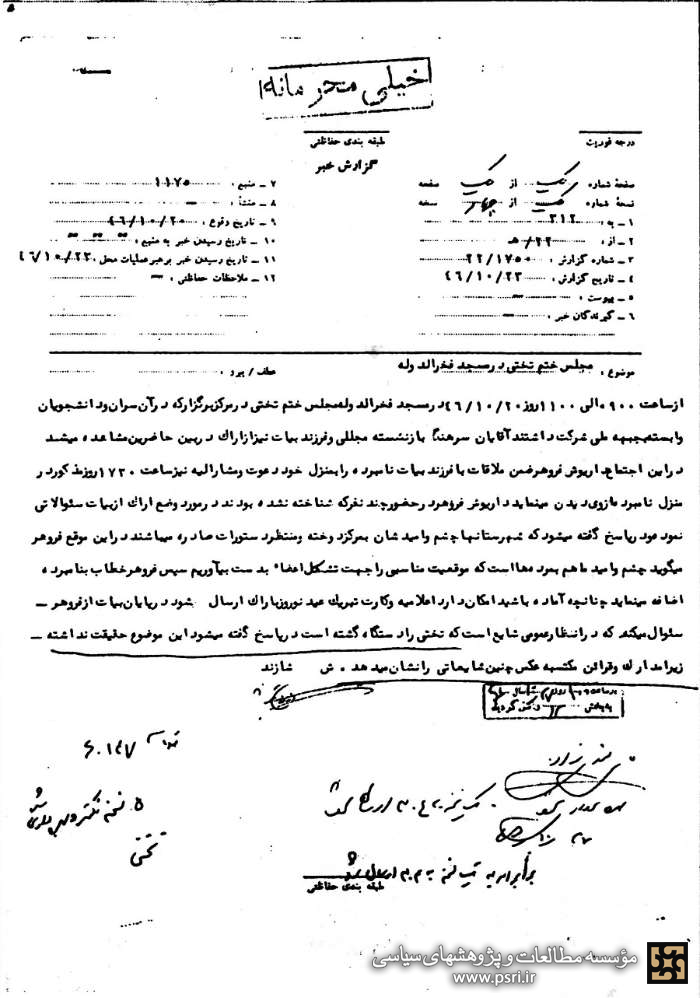 خیلی محرمانه
درجه فوریت
طبقه بندی حفاظتی
گزارش خبر
صفحهٔ شماره یک از یک صفحه
نسخهٔ شماره یک از چهار نسخه
۱ ـ به : ۳۱۲
۲ ـ از : ۲۲/هـ
۳ ـ شماره گزارش : ۲۲/۱۷۵۰
۴ ـ تاریخ گزارش : ۴۶/۱۰/۲۳
۵ ـ پیوست : ـ
۶ ـ گیرندگان خبر : ـ
۷ ـ منبع : ۱۱۷۵
۸ ـ منشأ : ـ
۹ ـ تاریخ وقوع : ۴۶/۱۰/۲۰
۱۰ ـ تاریخ رسیدن خبر به منبع : ـ ـ ـ
۱۱ ـ تاریخ رسیدن خبر برهبر عملیات محل : ۴۶/۱۰/۲۳
۱۲ ـ ملاحظات حفاظتی : ـ
موضوع : مجلس ختم تختی در مسجد فخرالدوله
عطف / پیرو :
ازساعت ۰۹۰۰ الی ۱۱۰۰ روز ۴۶/۱۰/۲۰ در مسجد فخرالدوله مجلس ختم تختی در مرکز برگزار که در آن سران و دانشجویان
وابسته بجبهه ملی شرکت داشتند آقایان سرهنگ بازنشسته مجللی و فرزند بیات نیز از اراک در بین حاضرین مشاهده میشد
در این اجتماع داریوش فروهر ضمن ملاقات با فرزند بیات نامبرده را بمنزل خود دعوت و مشارالیه نیز ساعت ۱۷۳۰ روز مذکور در
منزل نامبرده از وی دیدن مینماید داریوش فروهر در حضور چند نفر که شناخته نشده بودند در مورد وضع اراک از بیات سئوالاتی
نموده و در پاسخ گفته میشود که شهرستانها چشم وامیدشان بمرکز دوخته ومنتظر دستورات صادره میباشند در این موقع فروهر
میگوید چشم وامید ما هم بمردم است که موقعیت مناسبی را جهت تشکل اعضاء بدست بیآوریم سپس فروهر خطاب بنامبرده
اضافه مینماید چنانچه آماده باشید امکان دارد اعلامیه وکارت تبریک عید نوروز باراک ارسال شود در پایان بیات از فروهر ـ
سئوال میکند که در انظار عمومی شایع است که تختی را دستگاه کشته است در پاسخ گفته میشود این موضوع حقیقت نداشته ـ
زیرا مدارک وقرائن مکتسبه عکس چنین شایعاتی را نشان میدهد . ش شازند
۶۰۱۴۷
تختی
طبقه بندی حفاظتی
مؤسسه مطالعات و پژوهشهای سیاسی
www.psri.ir